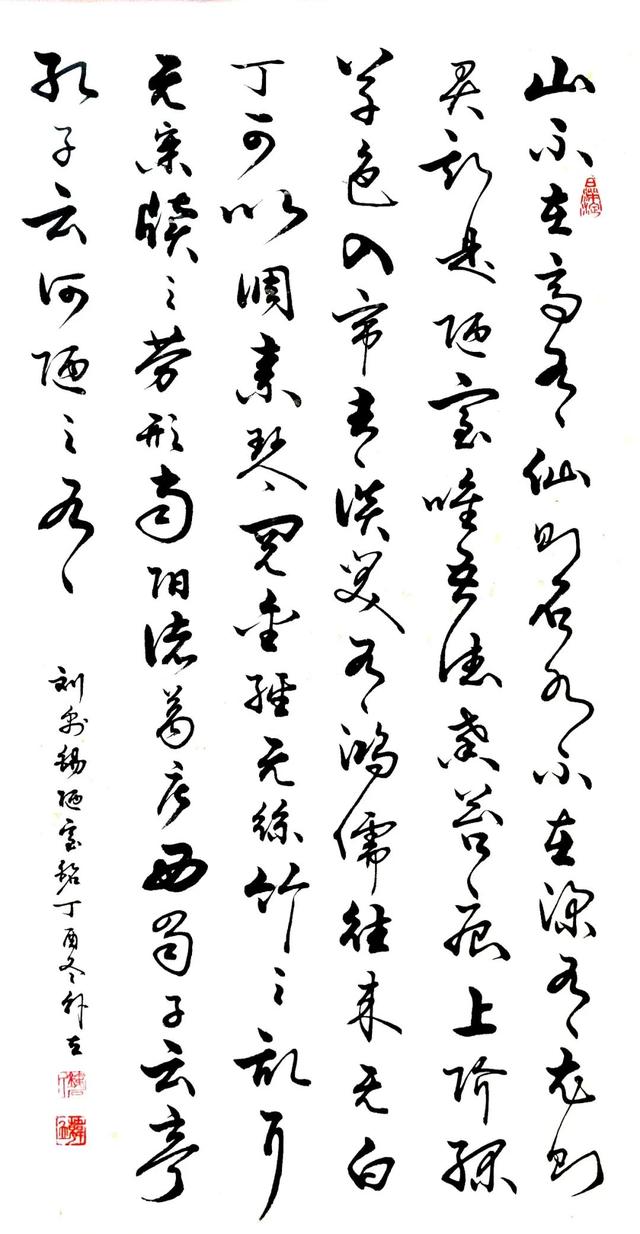 山不在高有仙则名水不在深有龙则
灵斯是陋室唯吾德馨苔痕上阶绿
草色入帘青谈笑有鸿儒往来无白
丁可以调素琴阅金经无絲竹之乱耳
无案牍之劳形南阳诸葛庐西蜀子云亭
孔子云何陋之有
刘禹锡陋室铭丁酉冬